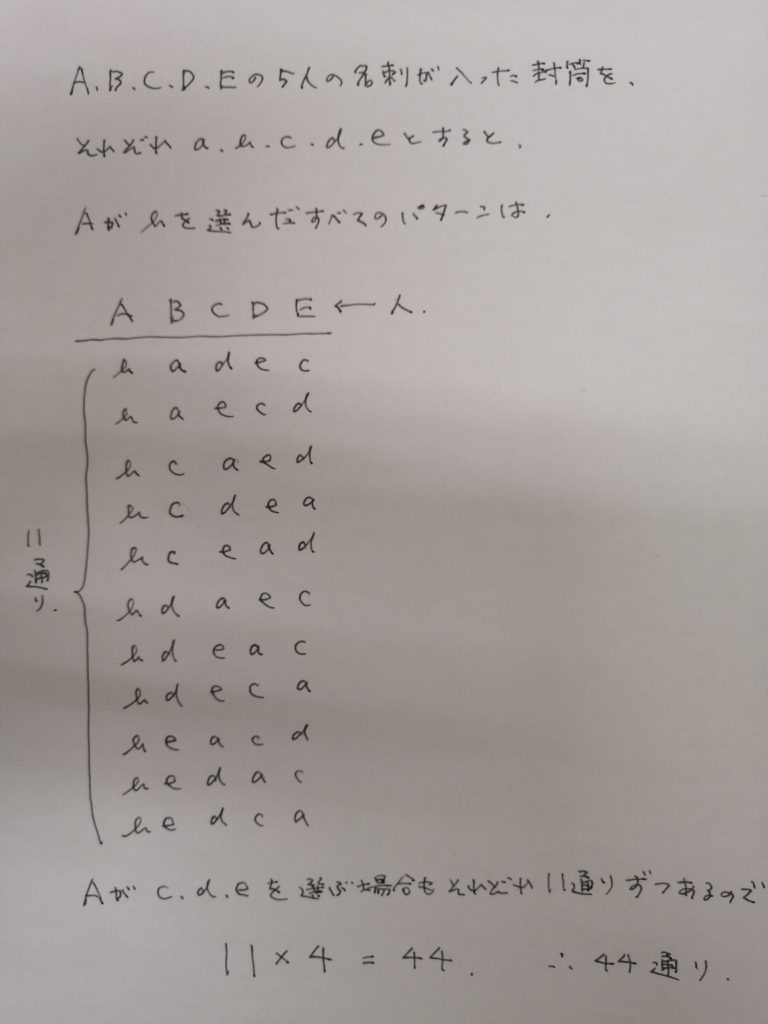 A.B.C.D.Eの5人の名刺が入った封筒を、
それぞれ a.b.c.d.eとすると、
Aが bを選んだすべてのパターンは、
A B C D E ← 人.
b a d e c
b a e c d
b c a e d
b c d e a
b c e a d
b d a e c
b d e a c
b d e c a
b e a c d
b e d a c
b e d c a
11通り.
Aが c.d.eを選ぶ場合も それぞれ 11通りずつあるので
11 × 4 = 44. ∴ 44通り.